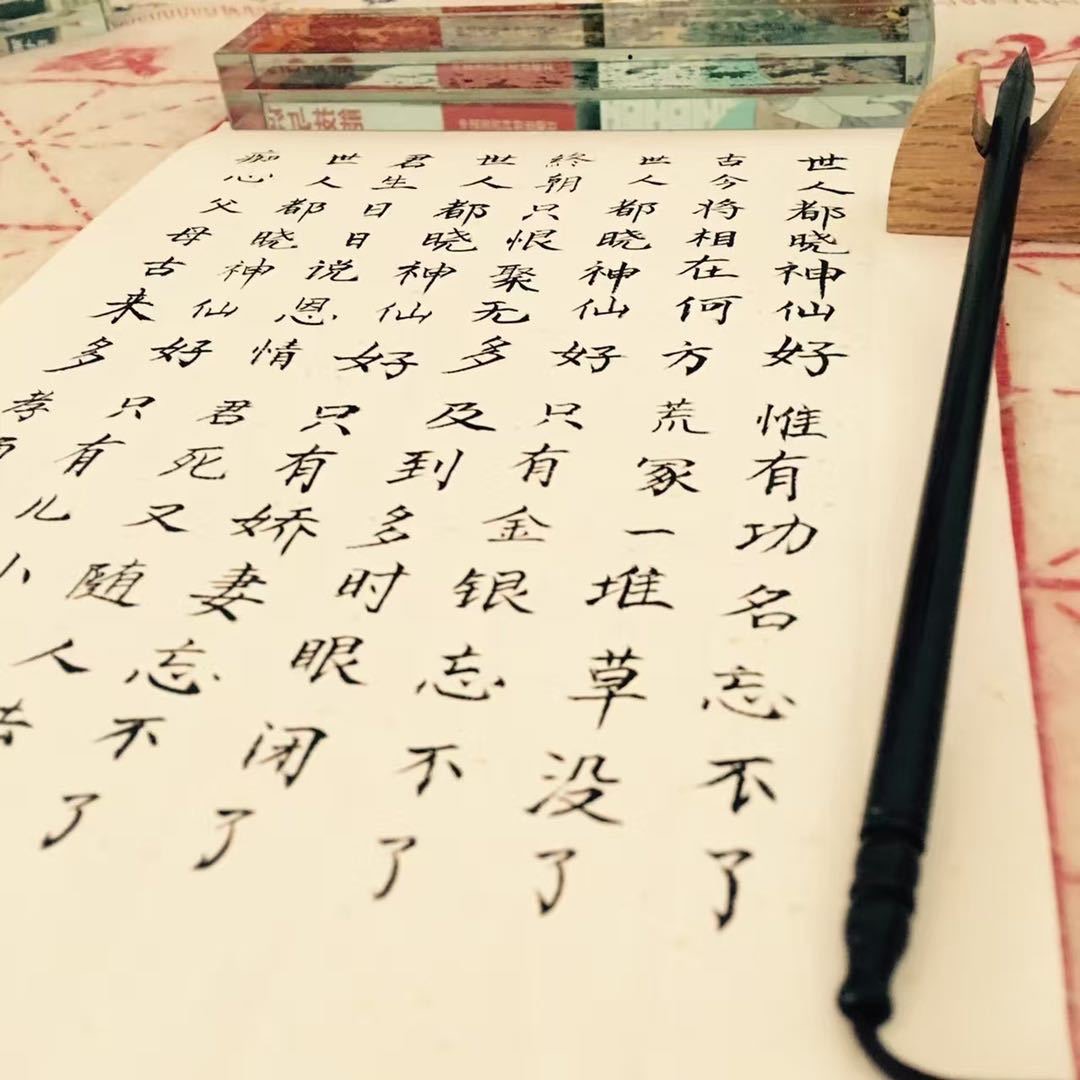 世人都晓神仙好 惟有功名忘不了
古今将相在何方 荒冢一堆草没了
世人都晓神仙好 只有金银忘不了
終朝只恨聚无多 及到多时眼闭了
世人都晓神仙好 只有娇妻忘不了
君生日日说恩情 君死又随人去
世人都晓神仙好 只有儿
痴心父母古来多 孝